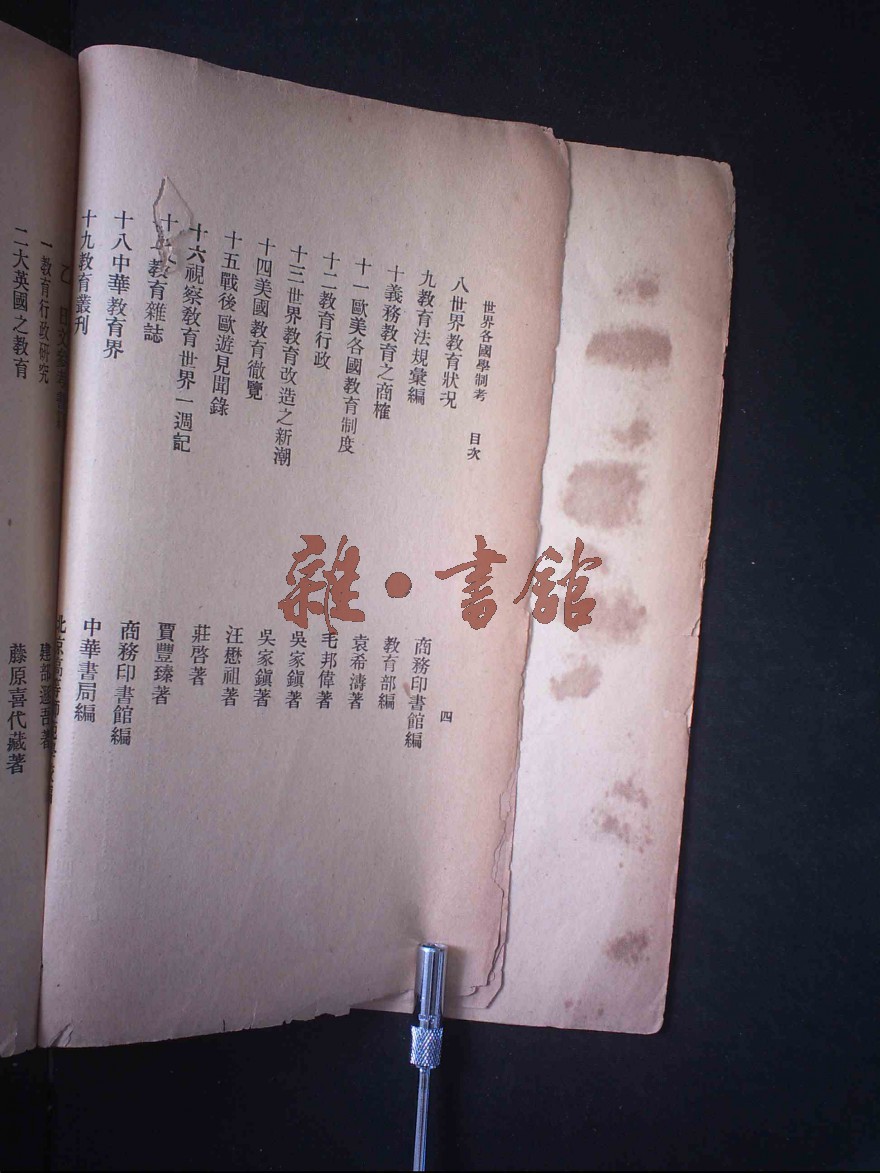 世界各國學制考 目次 四
八世界教育狀況 商務印書館編
九教育法規彙編 教育部編
十義務教育之商榷 袁希濤著
十一歐美各國教育制度 毛邦偉著
十二教育行政 吳家鎮著
十三世界教育改造之新潮 吳家鎮著
十四美國教育徹覽 汪懋祖著
十五戰後歐遊見聞錄 莊啓著
十六視察教育世界一週記 賈豐臻著
教育雜誌 商務印書館編
十八中華教育界 中華書局編
十九教育叢刊 北京高等
乙
一教育行政研究 建部遯吾著
二大英國之教育 藤原喜代藏著
雜·書館